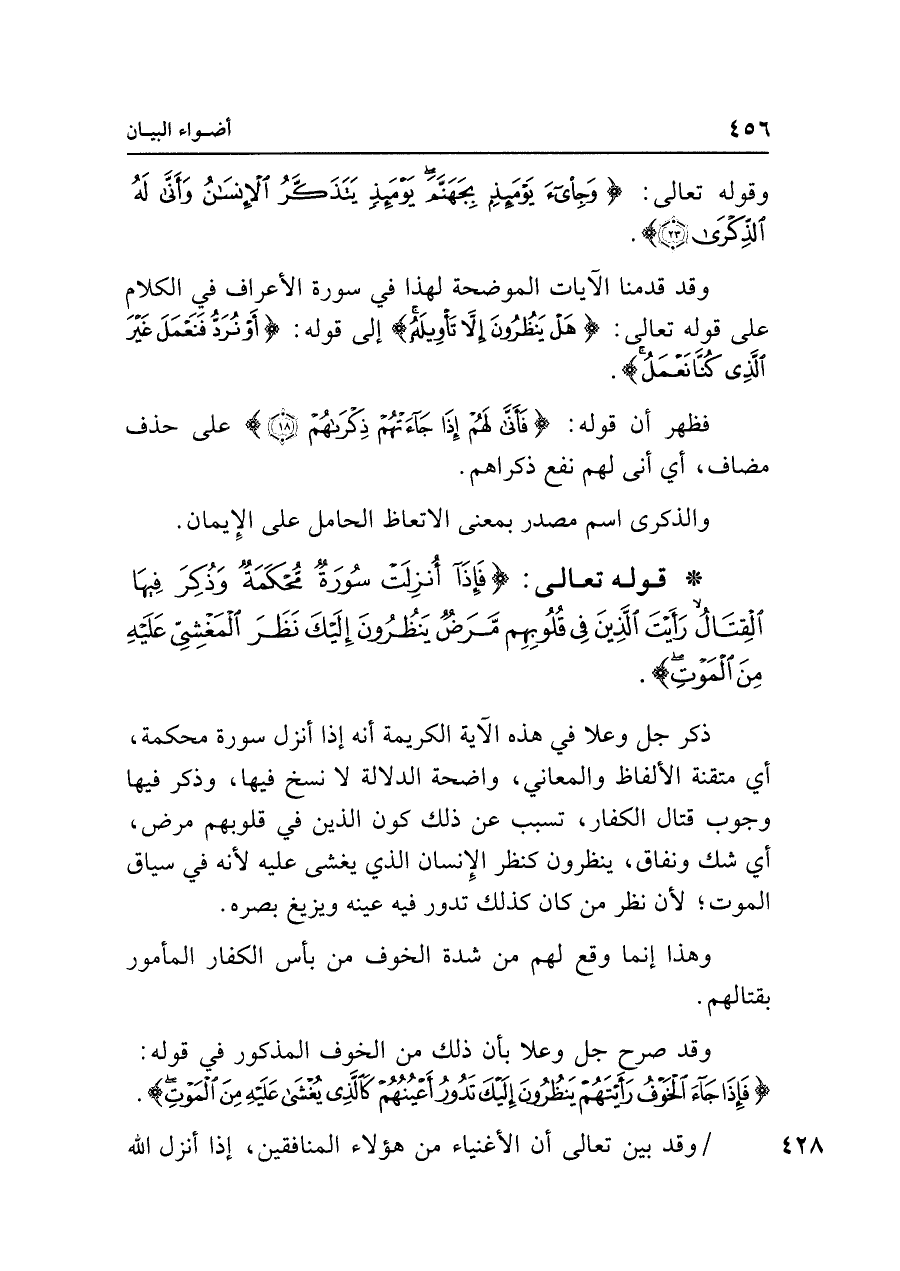 ٤٥٦ أضـواء البيـان
وقوله تعالى: ﴿ وَجِاْيٓءَ يَوْمَئِذِۭ بِجَهَنَّمَۚ يَوْمَئِذٖ يَتَذَكَّرُ ٱلْإِنسَٰنُ وَأَنَّىٰ لَهُ
ٱلذِّكْرَىٰ ٢٣﴾.
وقد قدمنا الآيات الموضحة لهذا في سورة الأعراف في الكلام
على قوله تعالى: ﴿ هَلْ يَنظُرُونَ إِلَّا تَأْوِيلَهُۥۚ﴾ إلى قوله: ﴿ أَوْ نُرَدُّ فَنَعْمَلَ غَيْرَ
ٱلَّذِى كُنَّا نَعْمَلُۚ﴾.
فظهر أن قوله: ﴿ فَأَنَّىٰ لَهُمْ إِذَا جَآءَتْهُمْ ذِكْرَىٰهُمْ ١٨ ﴾ على حذف
مضاف، أي أنى لهم نفع ذكراهم.
والذكرى اسم مصدر بمعنى الاتعاظ الحامل على الإيمان.
* قوله تعالى: ﴿ فَإِذَآ أُنزِلَتْ سُورَةٌ مُّحْكَمَةٌ وَذُكِرَ فِيهَا
ٱلْقِتَالُۙ رَأَيْتَ ٱلَّذِينَ فِى قُلُوبِهِم مَّرَضٌ يَنظُرُونَ إِلَيْكَ نَظَرَ ٱلْمَغْشِىِّ عَلَيْهِ
مِنَ ٱلْمَوْتِۖ﴾.
ذكر جل وعلا في هذه الآية الكريمة أنه إذا أنزل سورة محكمة،
أي متقنة الألفاظ والمعاني، واضحة الدلالة لا نسخ فيها، وذكر فيها
وجوب قتال الكفار، تسبب عن ذلك كون الذين في قلوبهم مرض،
أي شك ونفاق، ينظرون كنظر الإنسان الذي يغشى عليه لأنه في سياق
الموت؛ لأن نظر من كان كذلك تدور فيه عينه ويزيغ بصره.
وهذا إنما وقع لهم من شدة الخوف من بأس الكفار المأمور
بقتالهم.
وقد صرح جل وعلا بأن ذلك من الخوف المذكور في قوله:
﴿ فَإِذَا جَآءَ ٱلْخَوْفُ رَأَيْتَهُمْ يَنظُرُونَ إِلَيْكَ تَدُورُ أَعْيُنُهُمْ كَٱلَّذِى يُغْشَىٰ عَلَيْهِ مِنَ ٱلْمَوْتِۖ﴾.
٤٢٨ / وقد بين تعالى أن الأغنياء من هؤلاء المنافقين، إذا أنزل الله